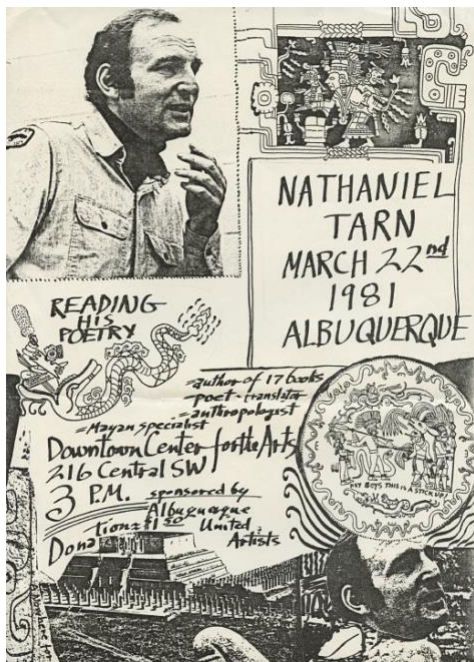 NATHANIEL
TARN
MARCH 22nd
1981
ALBUQUERQUE
READING
HIS
POETRY
-author of 17 books
-poet-translator
-anthropologist
-Mayan specialist
Downtown Center for the Arts
216 Central SW
3 P.M. sponsored by
Albuquerque
United
Artists
Donations $1.50
HEY BOYS THIS IS A STICK UP!